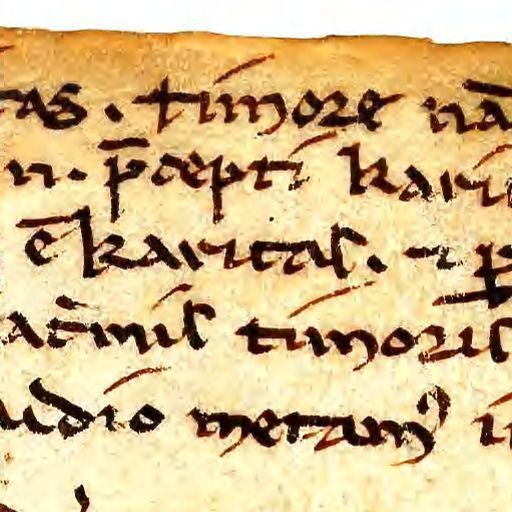 tas. timore nā
n. p̄cepti kari
ē karitas. ⁊ p
at̄nis timoris
udio metam᾽ i